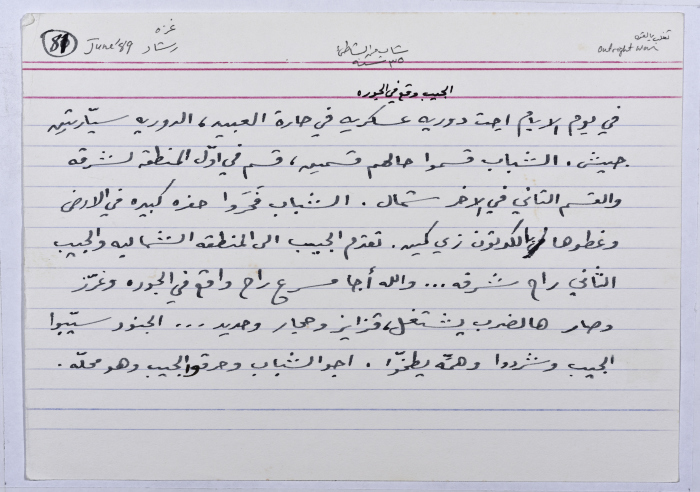 81
June '89
غزه
رشاد
شاب من الشاطئ
٣٥ سنه
تغلب بالقوة
outright win
الجيب وقع في الجوره
في يوم الايام اجت دوريه عسكريه في حارة العبيد، الدوريه سيّارتين
جيش. الشباب قسموا حالهم قسمين، قسم في اوّل المنطقه لشرقه
والقسم الثاني في الاخر شمال. الشباب فَحَروا حفره كبيره في الارض
وغطوها بالكرتون زي كمين. تقدّم الجيب الى المنطقه الشماليه والجيب
الثاني راح شرقه... والله أجا مسرع راح واقع في الجوره وغرّز
وصار هالضرب يشتغل، قزايز وحجار وحديد... الجنود سيّبوا
الجيب وشردوا وهمّه يطخّوا. اجو الشباب وحرقوا الجيب وهو محلّه.